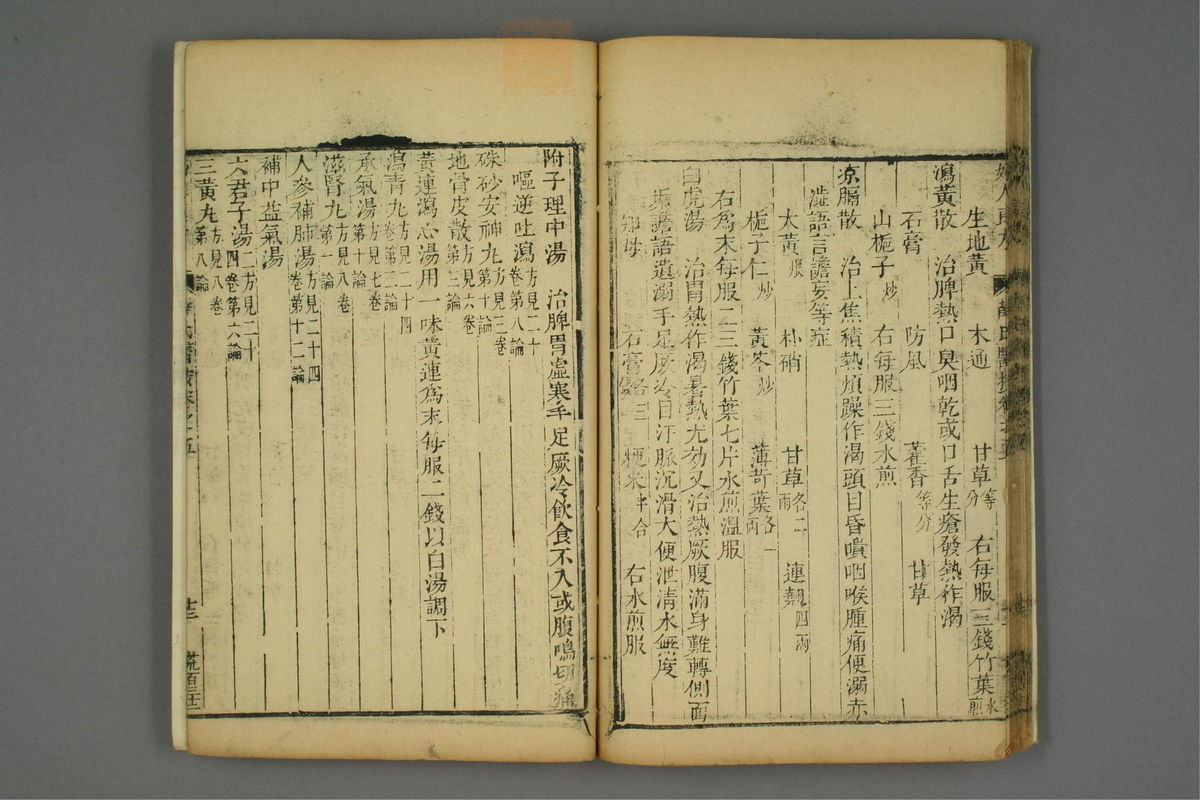 生地黃 木通 甘草等分 右每服三錢竹葉水煎
瀉黃散 治脾熱口臭咽乾或口舌生瘡發熱作渴
石膏 防風 藿香等分 甘草
山梔子炒 右每服三錢水煎
凉膈散 治上焦積熱煩躁作渴頭目昏嘳咽喉腫痛便溺赤
澁語言譫妄等症
大黃煨 朴硝 甘草各二兩 連翹四兩
梔子仁炒 黃芩炒 薄荷葉各一兩
右爲末每服二三錢竹葉七片水煎溫服
白虎湯 治胃熱作渴暑熱尤効又治熱厥腹滿身難轉側面
垢譫語遺溺手足厥冷自汗脈沉滑大便泄清水無度
知母 石膏各三錢 粳米半合 右水煎服
附子理中湯 治脾胃虛寒手足厥冷飲食不入或腹鳴切痛
嘔逆吐瀉方見二十卷第八論
硃砂安神丸方見三卷第十論
地骨皮散方見六卷第三論
黃連瀉心湯用一味黃連爲末每服二錢以白湯調下
瀉青丸方見二十四卷第三論
承氣湯方見七卷第十論
滋腎丸方見八卷第一論
人參補肺湯方見二十四卷第十二論
補中益氣湯
六君子湯二方見二十四卷第六論
三黃丸方見八卷第八論